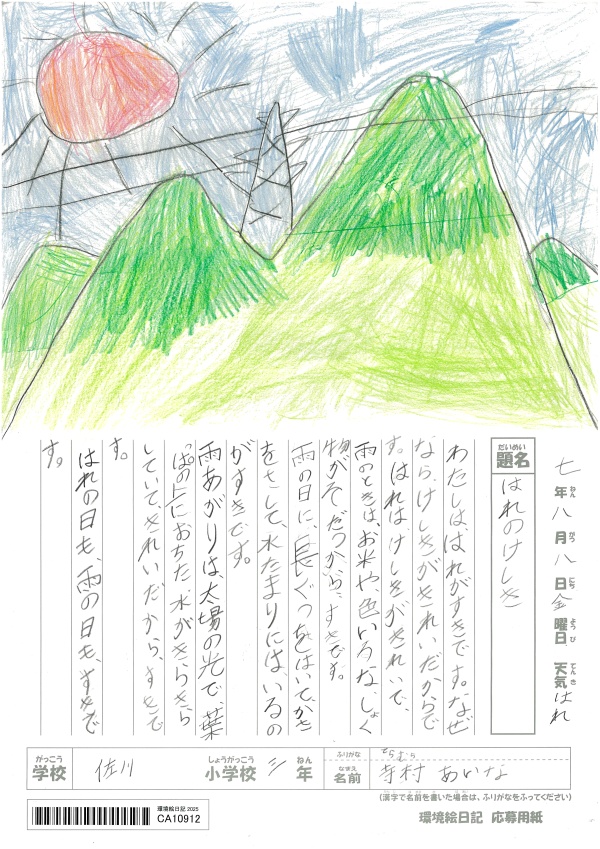 七年八月八日金曜日 天気はれ
ねん がつ にち ようび てんき
だいめい
題名 はれのけしき
わたしは、はれがすきです。なぜ
なら、けしきがきれいだからで
す。はれは、けしきがきれいで、
雨のときは、お米や、色いろな、しょく
物がそだつから、すきです。
雨の日に、長ぐつをはいて、かさ
をさして、水たまりには、いるの
がすきです。
雨あがりは、太場の光で、葉
っぱの上におちた、水がきらきら
していて、きれいだから、すきで
す。
はれの日も、雨の日も、すきで
す。
がっこう しょうがっこう ねん
学校 佐川 小学校 三 年
ふりがな てらむら
なまえ
名前 寺村 あいな
(漢字で名前を書いた場合は、ふりがなをふってください)
環境絵日記 2025
CA10912
環境絵日記 応募用紙